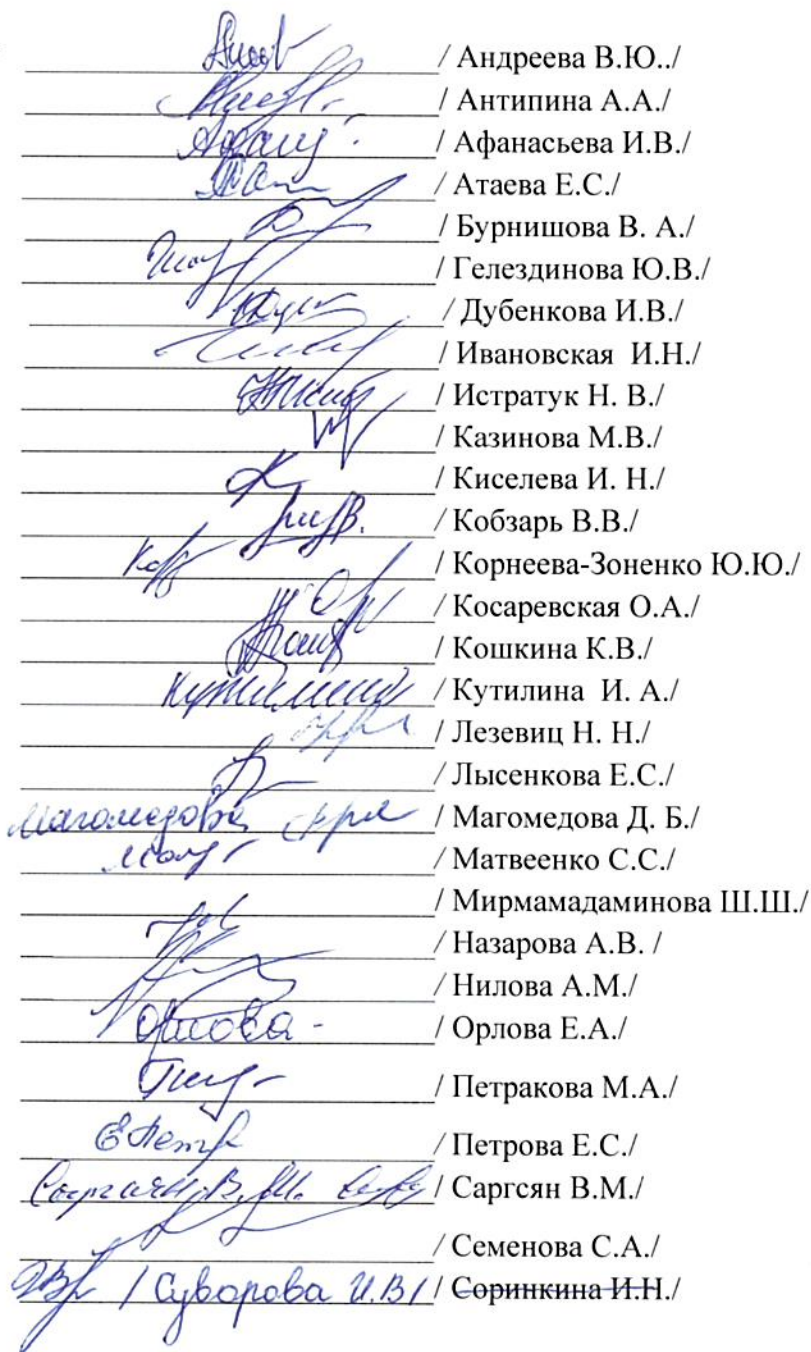 / Андреева В.Ю../
/ Антипина А.А./
/ Афанасьева И.В./
/ Атаева Е.С./
/ Бурнишова В. А./
/ Гелездинова Ю.В./
/ Дубенкова И.В./
/ Ивановская И.Н./
/ Истратук Н. В./
/ Казинова М.В./
/ Киселева И. Н./
/ Кобзарь В.В./
/ Корнеева-Зоненко Ю.Ю./
/ Косаревская О.А./
/ Кошкина К.В./
/ Кутилина И. А./
/ Лезевиц Н. Н./
/ Лысенкова Е.С./
Магомедова / Магомедова Д. Б./
/ Матвеенко С.С./
/ Мирмамадаминова Ш.Ш./
/ Назарова А.В. /
/ Нилова А.М./
Орлова / Орлова Е.А./
/ Петракова М.А./
/ Петрова Е.С./
Саргсян В.М. / Саргсян В.М./
/ Семенова С.А./
/ Суворова И.В/ / Соринкина И.Н./